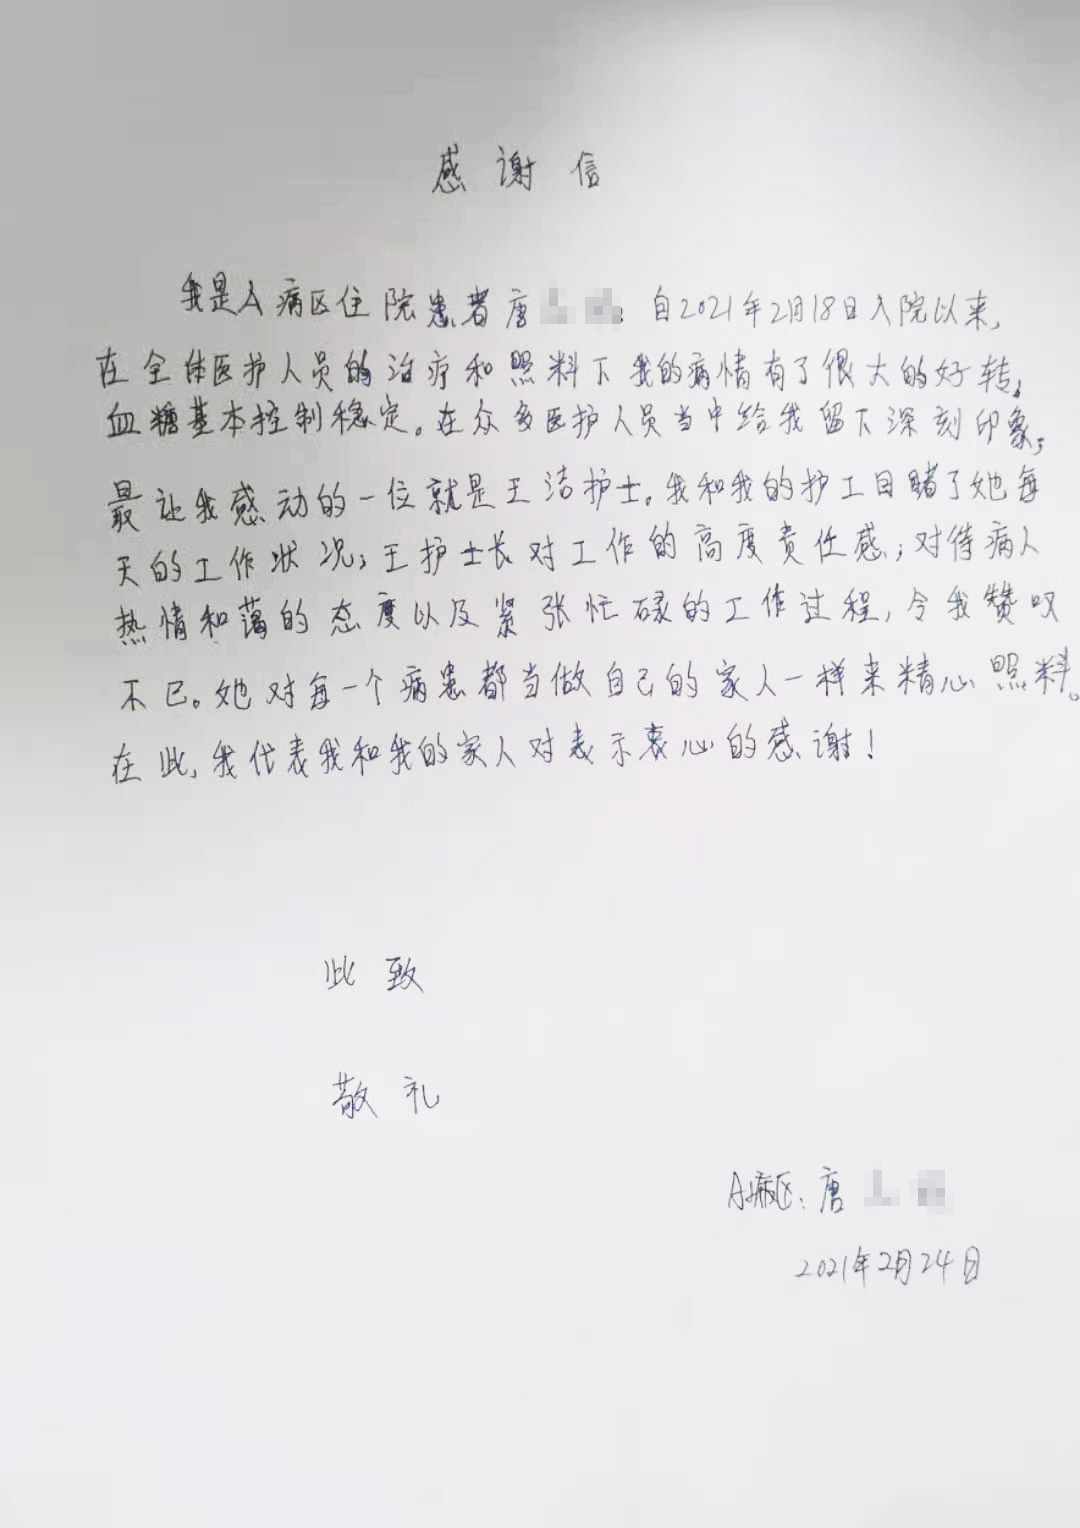 感谢信
我是A病区住院患者唐 : 自2021年2月18日入院以来,
在全体医护人员的治疗和照料下我的病情有了很大的好转。
血糖基本控制稳定。在众多医护人员当中给我留下深刻印象,
最让我感动的一位就是王洁护士。我和我的护工目睹了她每
天的工作状况;王护士长对工作的高度责任感;对待病人
热情和蔼的态度以及紧张忙碌的工作过程,令我赞叹
不已。她对每一个病患都当做自己的家人一样来精心照料。
在此,我代表我和我的家人对表示衷心的感谢!
此致
敬礼
A病区:唐
2021年2月24日